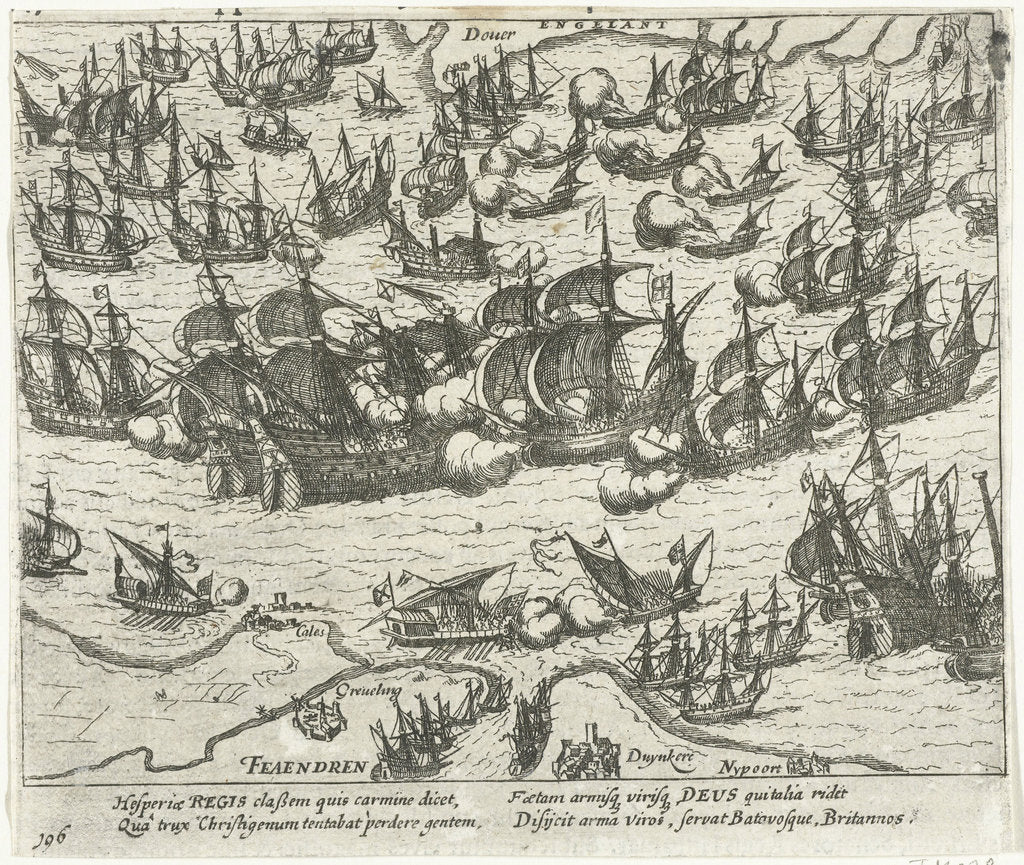 ENGELANT
Dover
Cales
Greveling
FLAENDREN
Duynkerc
Nypoort
Hesperiæ REGIS claßem quis carmine dicet,
Quâ trux Christigenum tentabat perdere gentem.
Fœtam armisq, virisq, DEUS qui talia ridet
Disijcit arma viros, servat Batavosque, Britannos.
196